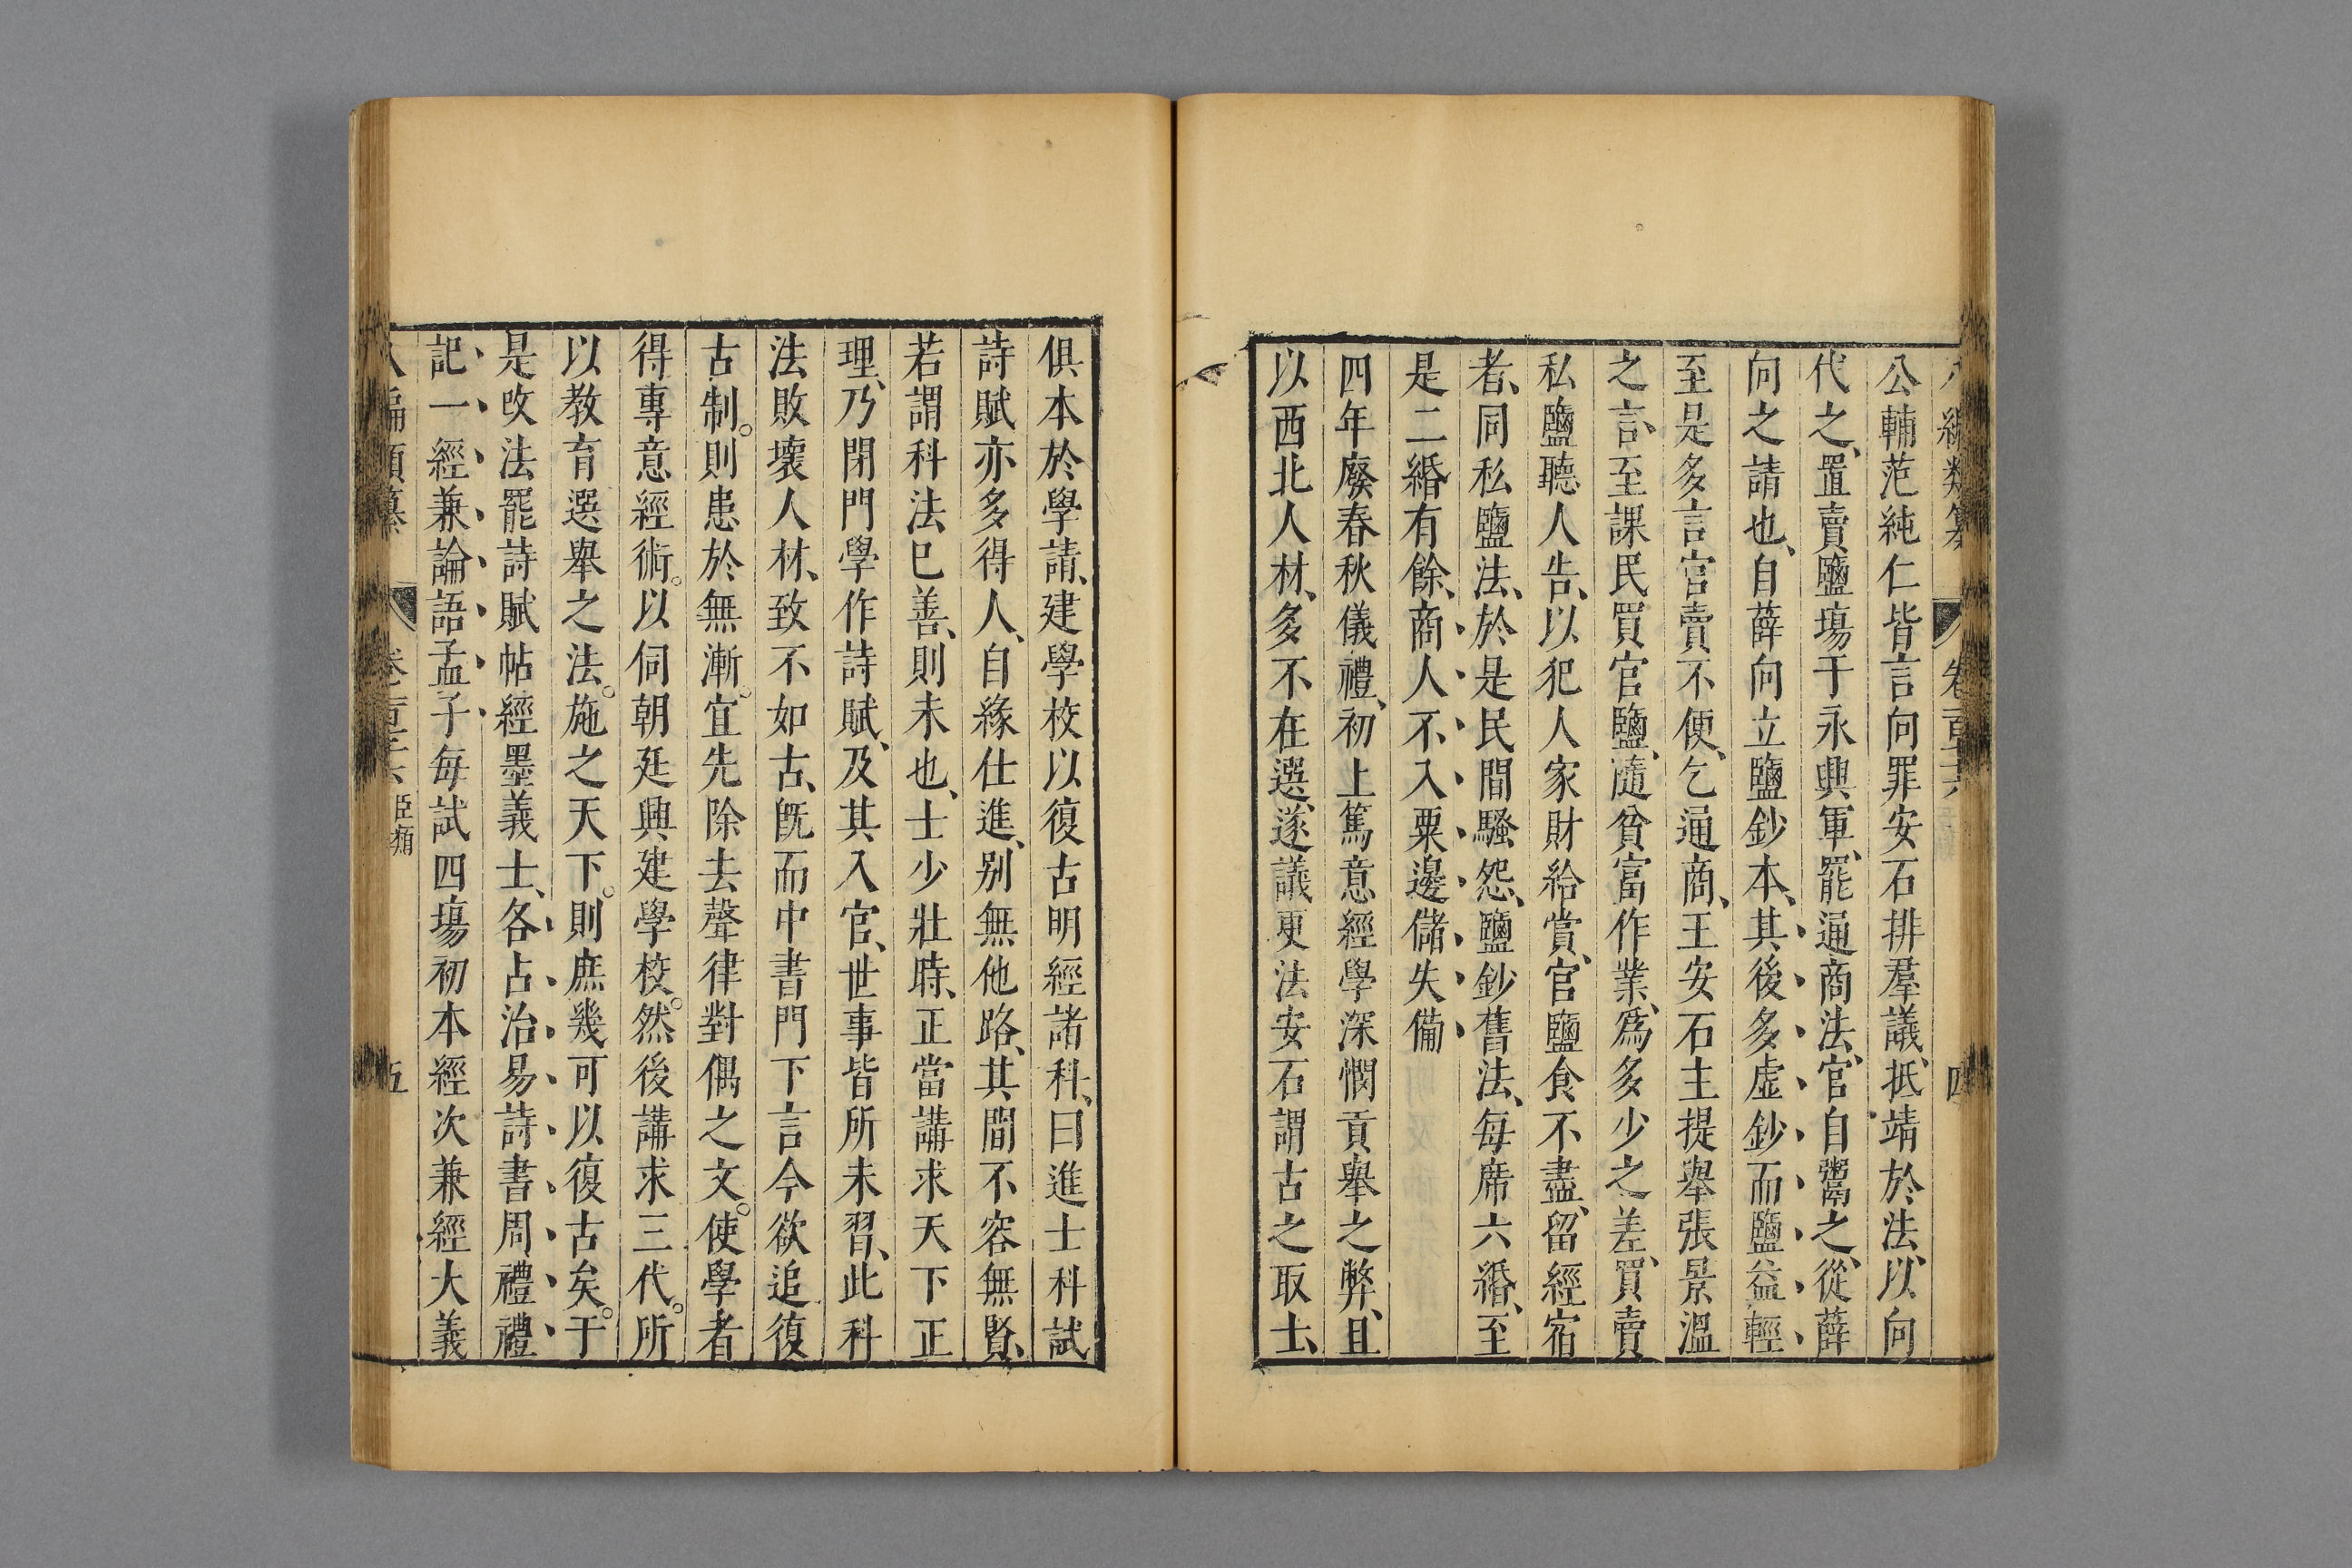 編類纂 卷一百三十六 四
公輔范純仁皆言向罪安石排羣議、抵靖於法、以向
代之、置賣鹽塲于永興軍、罷通商法、官自鬻之、從薛
向之請也、自薛向立鹽鈔本、其後多虛鈔而鹽益輕
至是多言官賣不便、乞通商、王安石主提舉張景溫
之言、至課民買官鹽、隨貧富作業、爲多少之差、買賣
私鹽聽人告、以犯人家財給賞、官鹽食不盡、留經宿
者、同私鹽法、於是民間騷怨、鹽鈔舊法、每席六緡、至
是二緡有餘、商人不入粟邊儲失備
四年廢春秋儀禮、初上篤意經學深憫貢舉之弊、且
以西北人材、多不在選、遂議更法安石謂古之取士、
俱本於學請、建學校以復古明經諸科、曰進士科試
詩賦亦多得人、自緣仕進、别無他路、其間不容無賢、
若謂科法已善、則未也、士少壯時、正當講求天下正
理、乃閉門學作詩賦、及其入官、世事皆所未習、此科
法敗壞人材、致不如古、旣而中書門下言今欲追復
古制。則患於無漸。宜先除去聲律對偶之文。使學者
得專意經術。以伺朝廷興建學校。然後講求三代。所
以教育選舉之法。施之天下。則庶幾可以復古矣。于
是改法罷詩賦帖經墨義士、各占治易詩書周禮禮
記一經兼論語孟子每試四塲初本經次兼經大義
編類纂 卷一百三十六 臣類 五